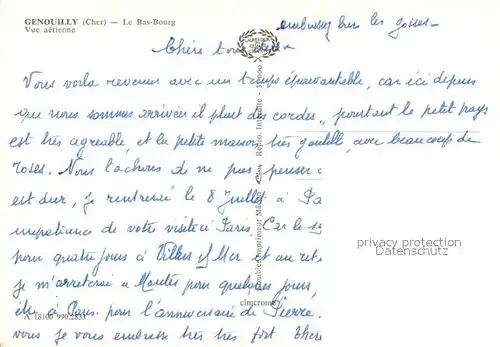 GENOUILLY (Cher) — Le Bas-Bourg
Vue aérienne
embrassez bien les gosses.
Chère
Vous voila revenus avec un temps épouvantable, car ici depuis
que nous sommes arrivées il pleut des cordes, pourtant le petit pays
est très agréable, et la petite maison très gentille, avec beaucoup de
roses. Nous tachons de ne pas penser
est dur, je rentrerai le 8 Juillet à Pa
impatiente de votre visite à Paris. Car le
pour quatre jours à Villers s/ Mer et au ret
je m'arreterai a Mantes pour quelques jours,
à Paris pour l'anniversaire de Pierre.
vous je vous embrasse très très fort
privacy protection
Datenschutz
cimcrome
A 18100 990.2853
Combier Imprimeur Mâcon